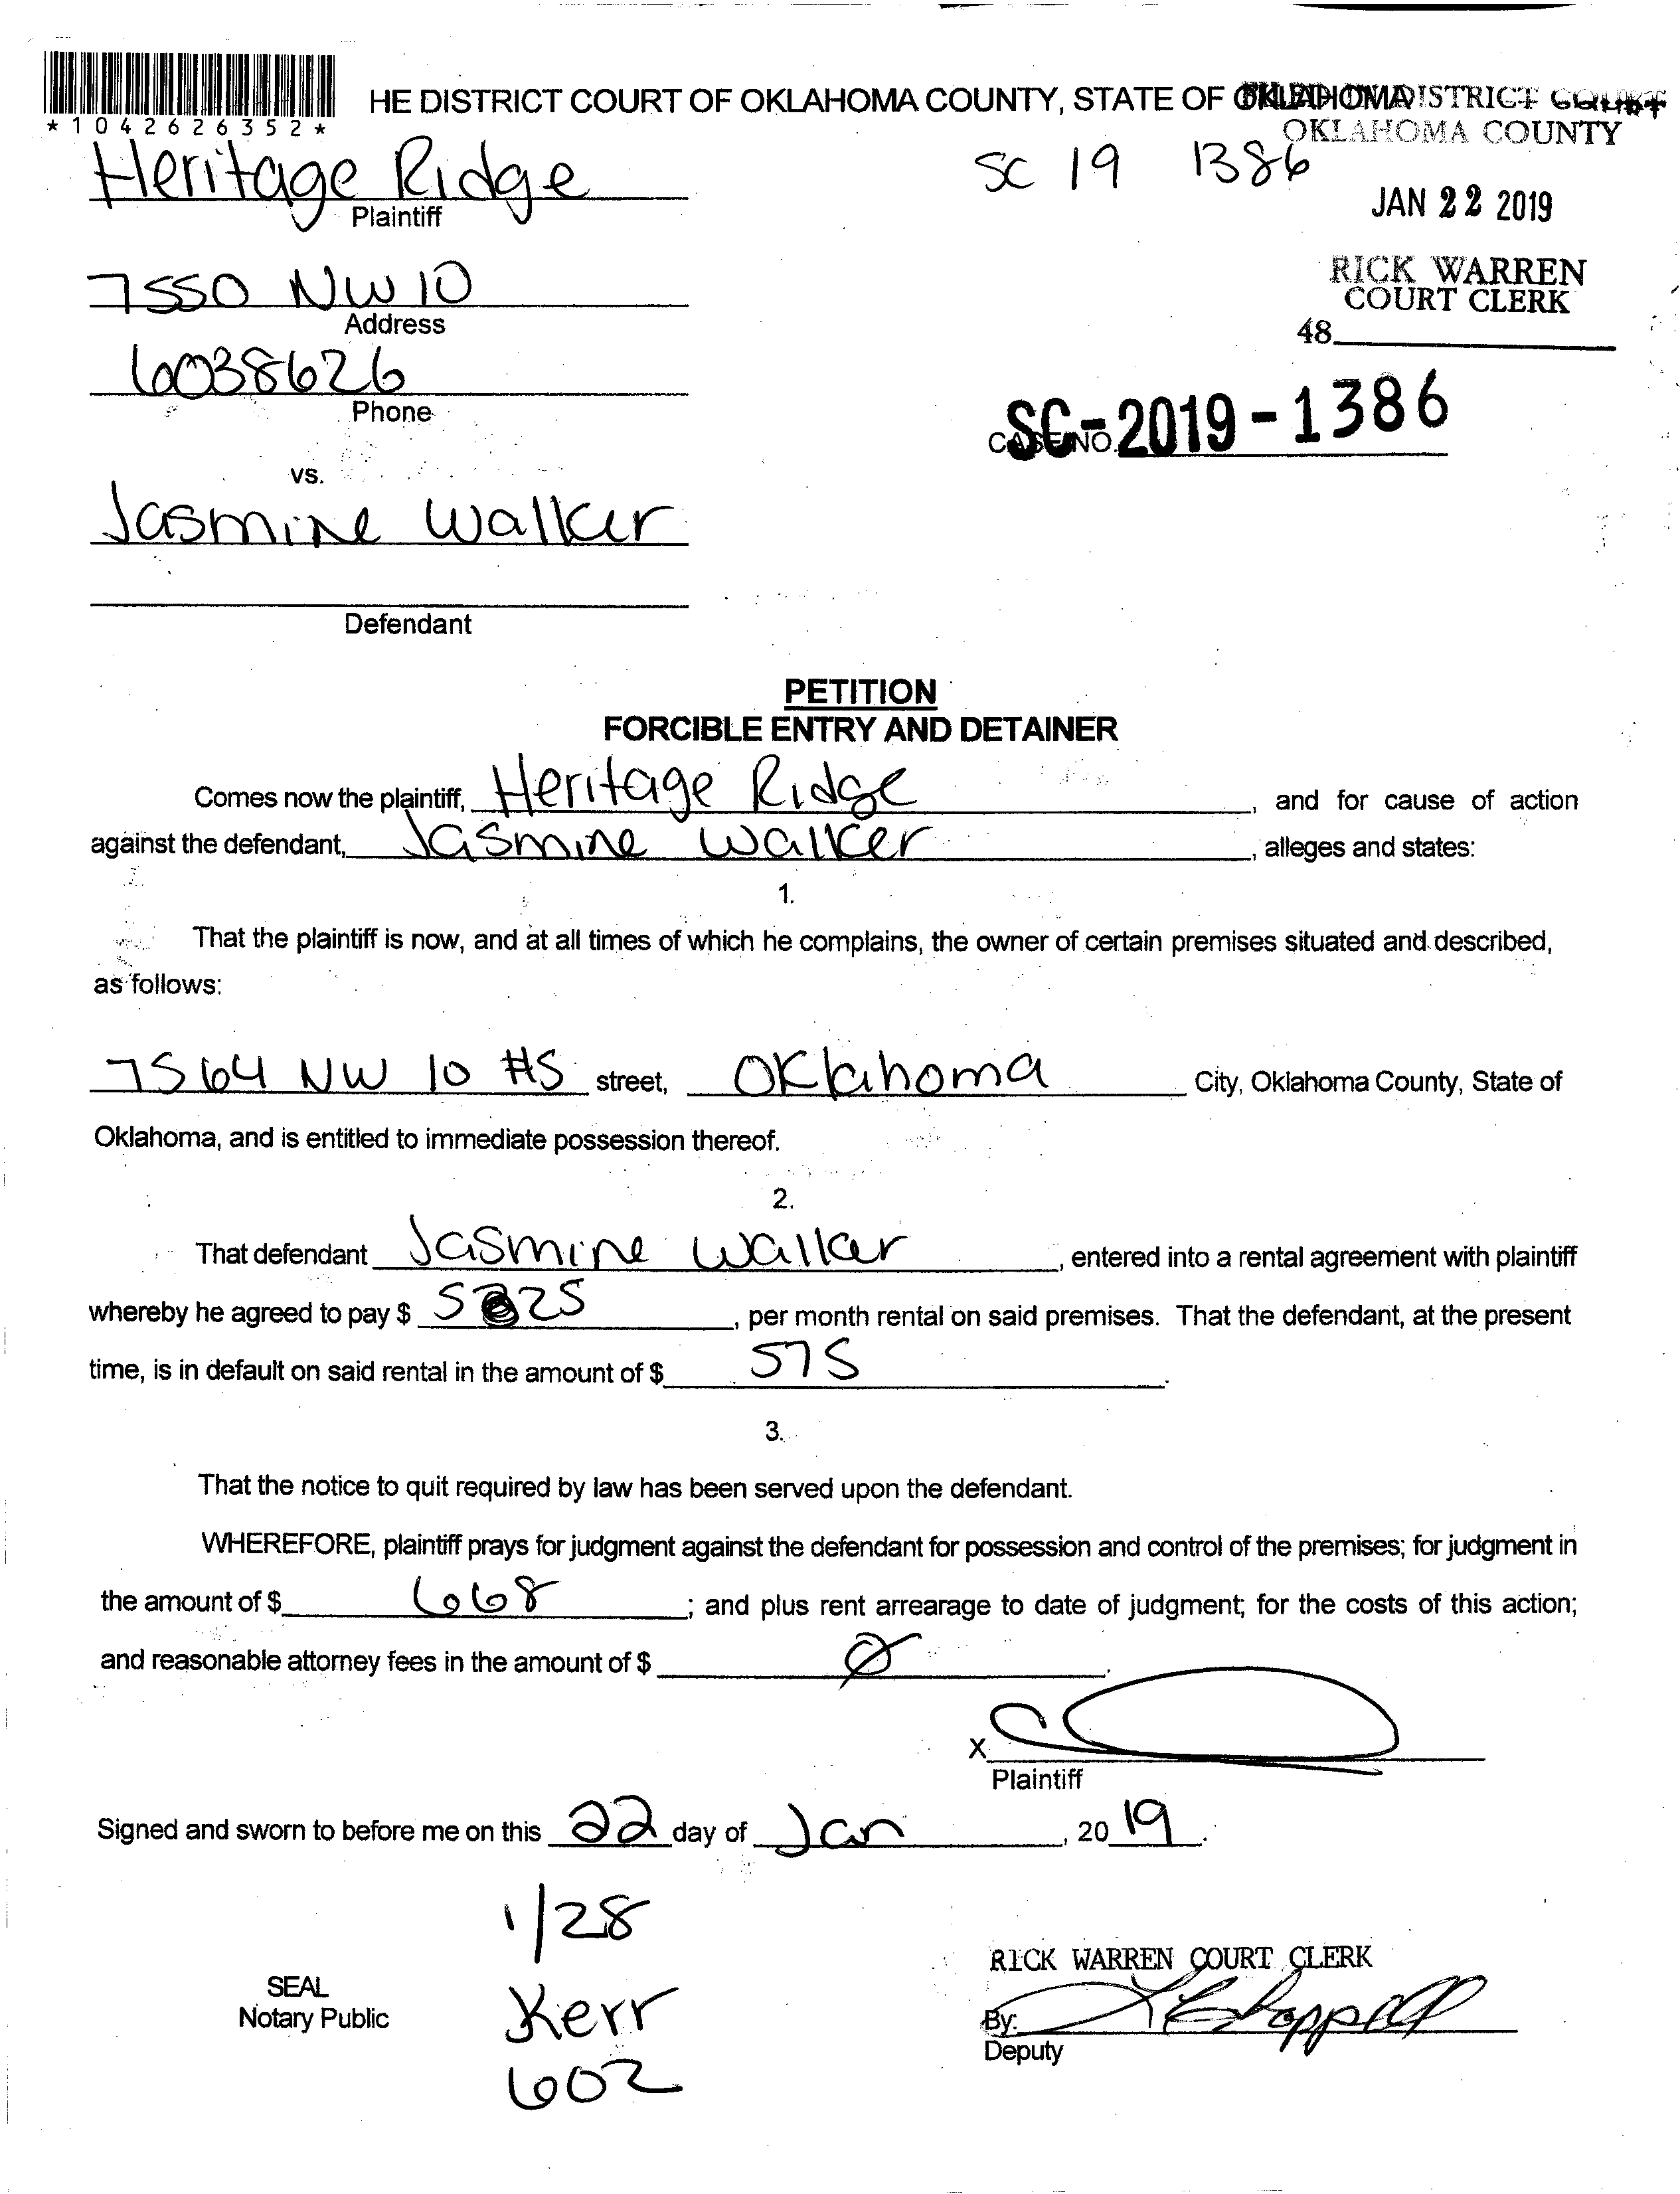 *1042626352*
HE DISTRICT COURT OF OKLAHOMA COUNTY, STATE OF OKLAHOMA
DISTRICT COURT
OKLAHOMA COUNTY
Heritage Ridge
Plaintiff
SC 19 1386
JAN 22 2019
7550 NW 10
Address
RICK WARREN
COURT CLERK
48
6038626
Phone
CASE NO. SC-2019-1386
vs.
Jasmine Walker
Defendant
PETITION
FORCIBLE ENTRY AND DETAINER
Comes now the plaintiff, Heritage Ridge, and for cause of action
against the defendant, Jasmine Walker, alleges and states:
1.
That the plaintiff is now, and at all times of which he complains, the owner of certain premises situated and described,
as follows:
7564 NW 10 #5 street, Oklahoma City, Oklahoma County, State of
Oklahoma, and is entitled to immediate possession thereof.
2.
That defendant Jasmine Walker, entered into a rental agreement with plaintiff
whereby he agreed to pay $ 525, per month rental on said premises. That the defendant, at the present
time, is in default on said rental in the amount of $ 575.
3.
That the notice to quit required by law has been served upon the defendant.
WHEREFORE, plaintiff prays for judgment against the defendant for possession and control of the premises; for judgment in
the amount of $ 668; and plus rent arrearage to date of judgment; for the costs of this action;
and reasonable attorney fees in the amount of $ Ø.
X
Plaintiff
Signed and sworn to before me on this 22 day of Jan, 2019.
1/28
Kerr
602
SEAL
Notary Public
RICK WARREN COURT CLERK
By:
Deputy